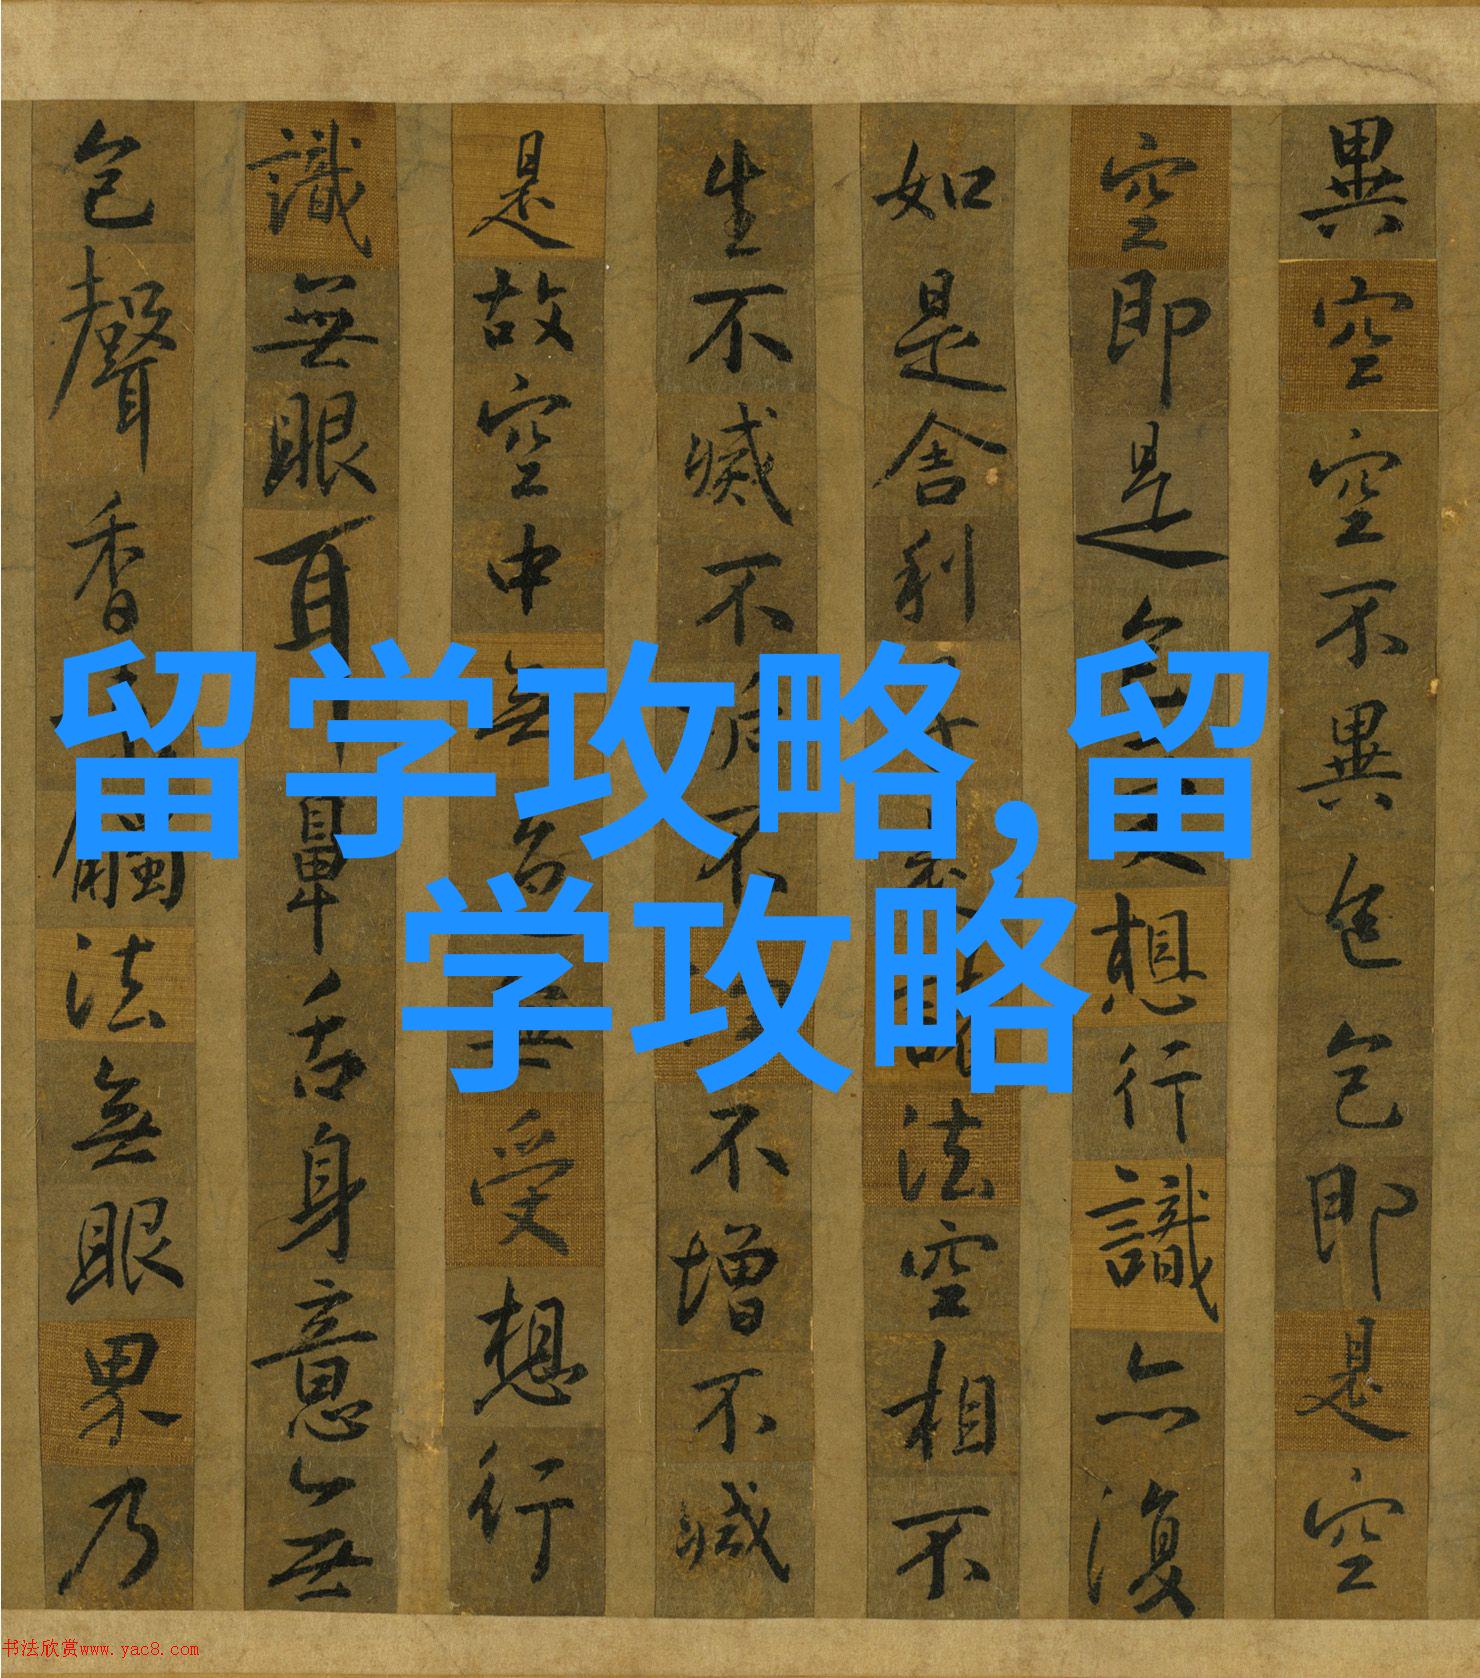 異空空不異色色即是空
空即是色想行識亦復
如是舍利諸法空相不
生不滅不不不增不減
是故空中無色無受想行
識無眼耳鼻舌身意無
色聲香觸法無眼界乃
留学攻略,留
学攻略
书法欣赏www.yac8.com